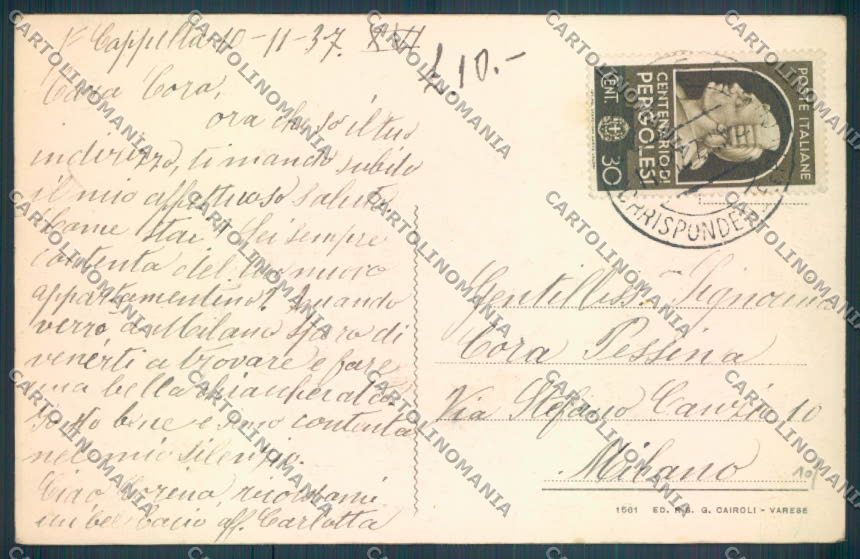 Cappella 10-11-37. XVI
£ 10.-
Cara Cora,
ora che so il tuo
indirizzo, ti mando subito
il mio affettuoso saluto.
Come stai? Sei sempre
contenta del tuo nuovo
appartamentino? Quando
verrò a Milano spero di
venirti a trovare e fare
una bella chiaccherata.
Io sto bene e sono contenta
nel mio silenzio.
Ciao Corina, ricordami
un bel bacio aff. Carlotta
POSTE ITALIANE
CENTENARIO DI
PERGOLESI
CENT. 30
CORRISPONDENZE
Gentiliss. Signorina
Cora Pessina
Via Stefano Canzio 10
Milano
10
1561 ED. R. & G. CAIROLI - VARESE
CARTOLINOMANIA